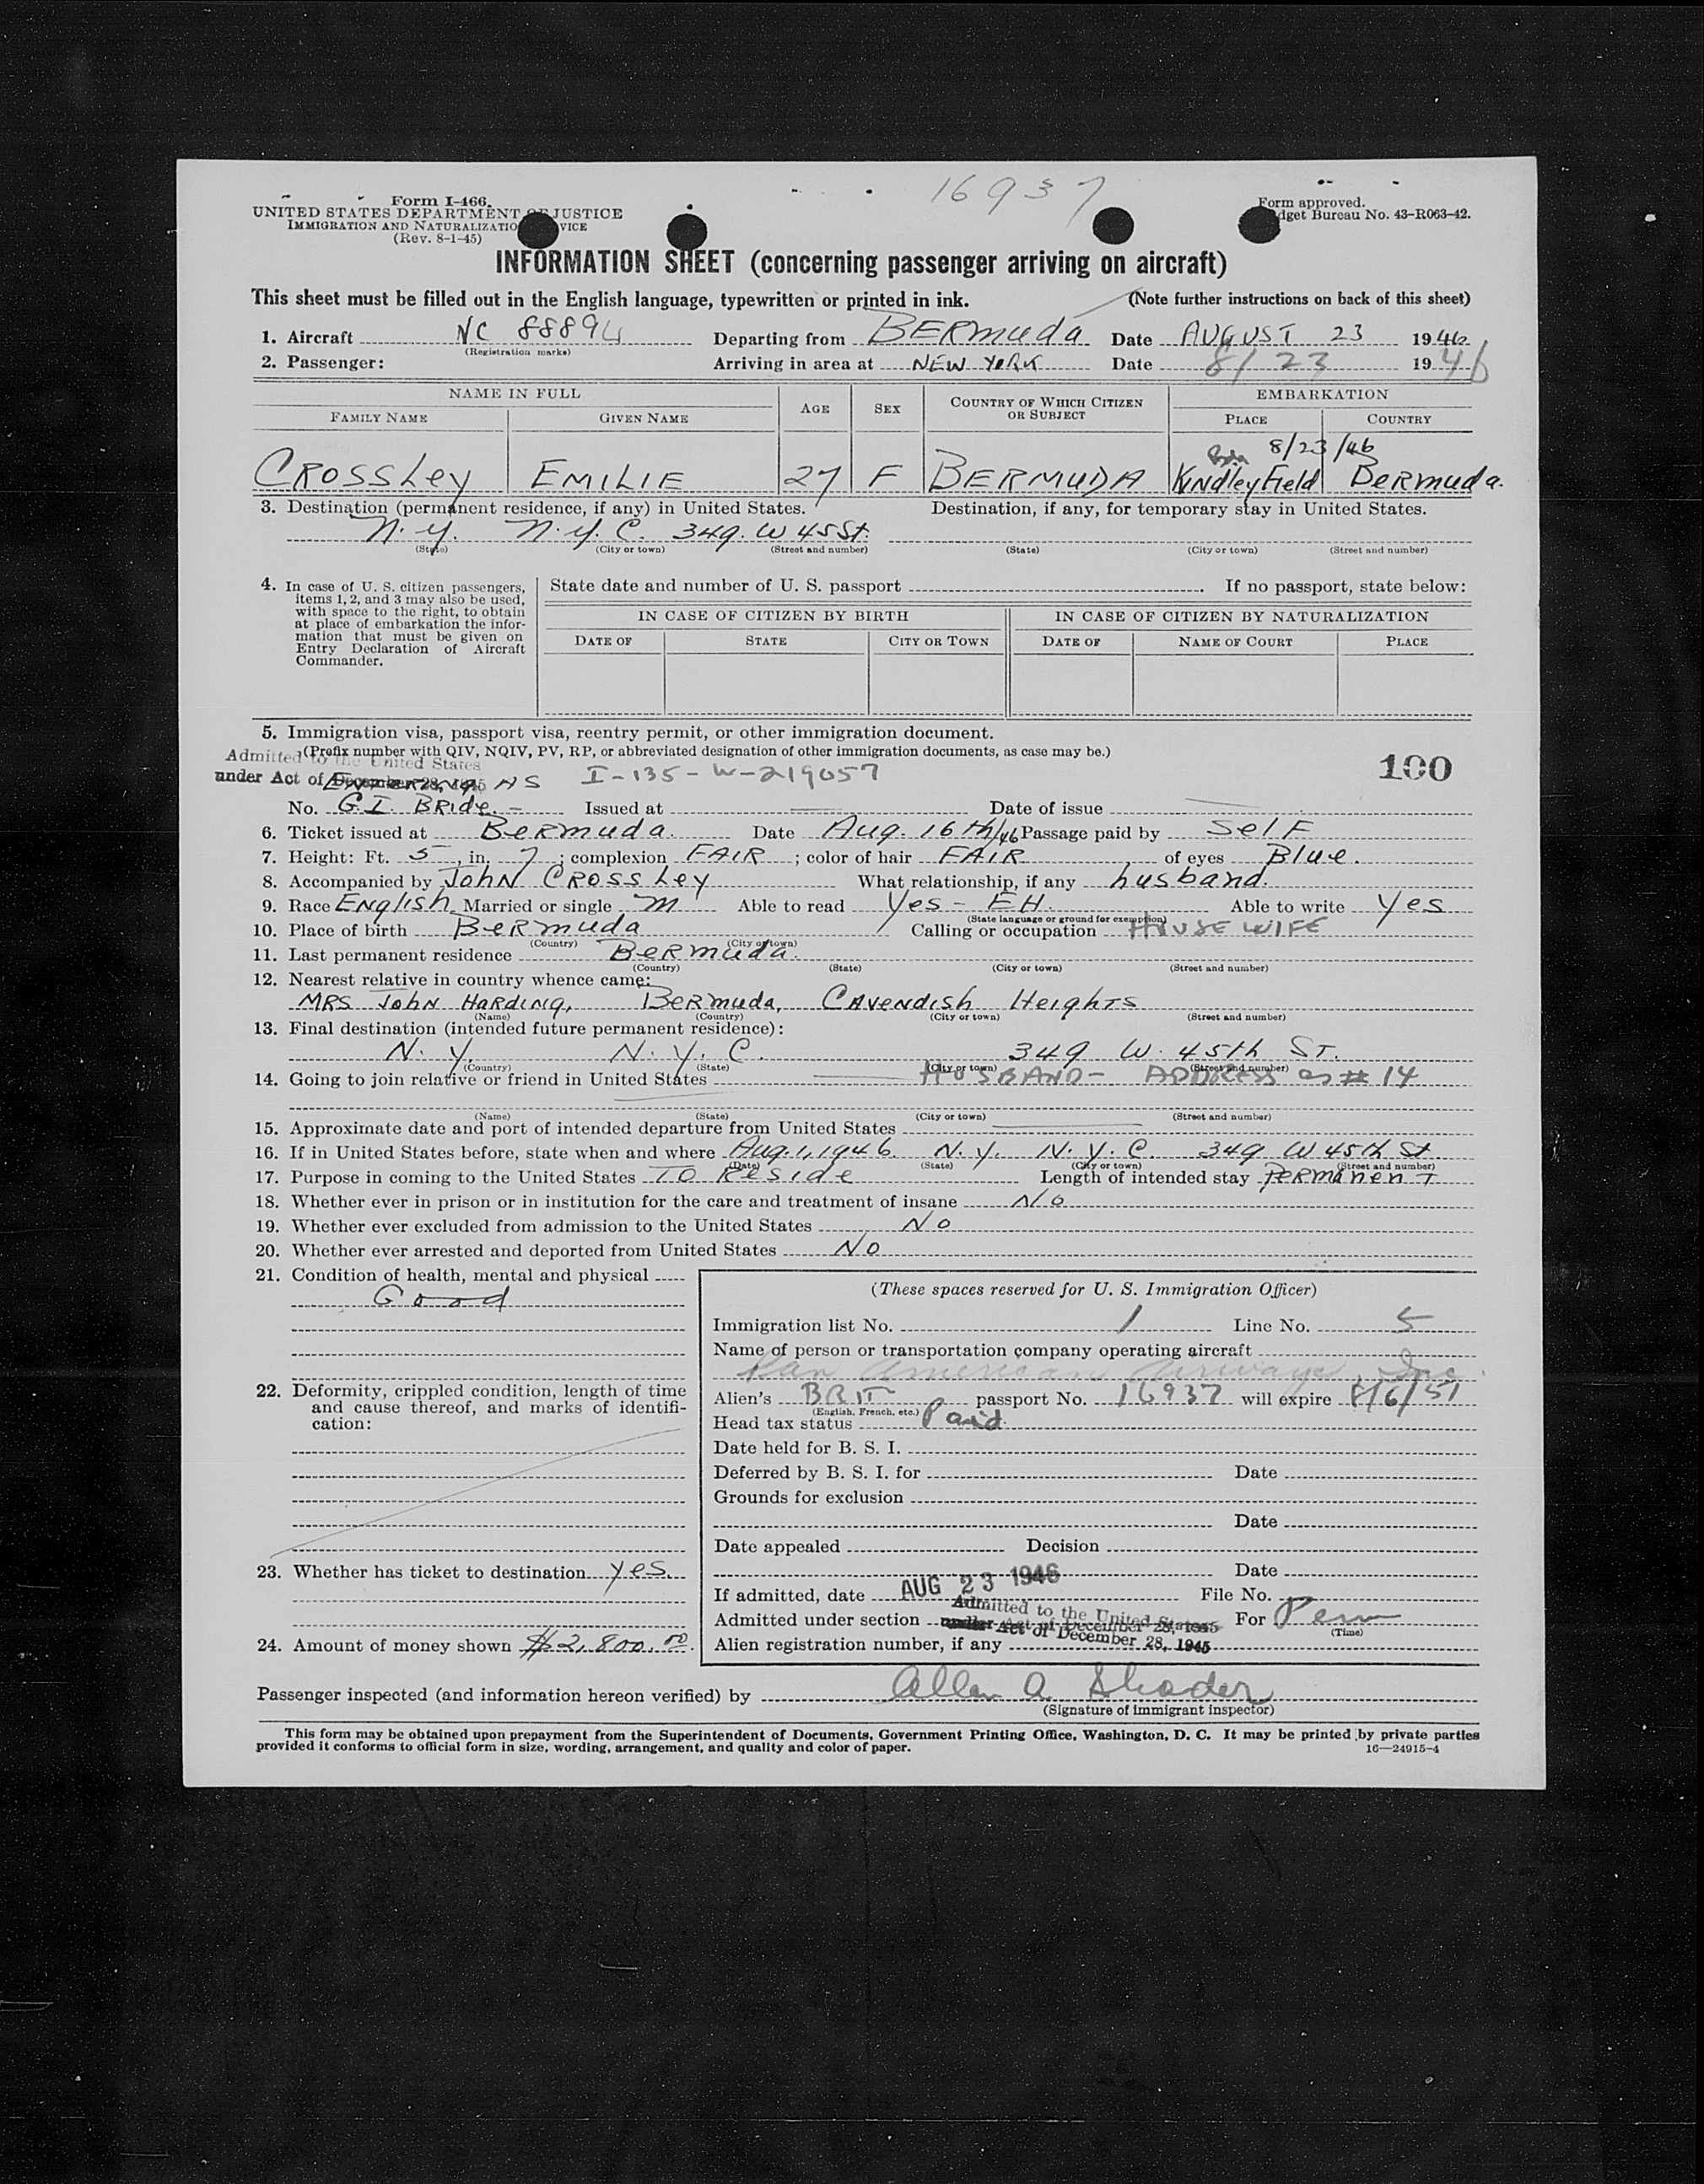 16937
Form I-466.
UNITED STATES DEPARTMENT OF JUSTICE
IMMIGRATION AND NATURALIZATIO VICE
(Rev. 8-1-45)
Form approved.
dget Bureau No. 43-R063-42.
INFORMATION SHEET (concerning passenger arriving on aircraft)
This sheet must be filled out in the English language, typewritten or printed in ink. (Note further instructions on back of this sheet)
1. Aircraft NC 88894 Departing from BERMUDA Date AUGUST 23 1946
(Registration marks)
2. Passenger: Arriving in area at NEW YORK Date 8/23 1946
NAME IN FULL AGE SEX COUNTRY OF WHICH CITIZEN OR SUBJECT EMBARKATION
FAMILY NAME GIVEN NAME PLACE COUNTRY
Bda 8/23/46
CROSSLEY EMILIE 27 F BERMUDA Kindley Field Bermuda.
3. Destination (permanent residence, if any) in United States. Destination, if any, for temporary stay in United States.
N.Y. N.Y.C. 349. W 45 St.
(State) (City or town) (Street and number) (State) (City or town) (Street and number)
4. In case of U. S. citizen passengers, items 1, 2, and 3 may also be used, with space to the right, to obtain at place of embarkation the information that must be given on Entry Declaration of Aircraft Commander.
State date and number of U. S. passport . If no passport, state below:
IN CASE OF CITIZEN BY BIRTH IN CASE OF CITIZEN BY NATURALIZATION
DATE OF STATE CITY OR TOWN DATE OF NAME OF COURT PLACE
5. Immigration visa, passport visa, reentry permit, or other immigration document.
(Prefix number with QIV, NQIV, PV, RP, or abbreviated designation of other immigration documents, as case may be.)
Admitted to the United States
under Act of December 28, 1945
Entering AS I-135-W-219057
100
No. G.I. Bride. Issued at Date of issue
6. Ticket issued at Bermuda. Date Aug. 16th/46 Passage paid by Self
7. Height: Ft. 5, in. 7; complexion FAIR; color of hair FAIR of eyes Blue.
8. Accompanied by John CROSSLEY What relationship, if any husband.
9. Race English Married or single M Able to read Yes - EH. Able to write Yes
(State language or ground for exemption)
10. Place of birth Bermuda Calling or occupation HOUSE WIFE
(Country) (City or town)
11. Last permanent residence Bermuda.
(Country) (State) (City or town) (Street and number)
12. Nearest relative in country whence came:
MRS John HARDING, Bermuda, CAVENDISH Heights
(Name) (Country) (City or town) (Street and number)
13. Final destination (intended future permanent residence):
N.Y. N.Y.C. 349 W. 45th ST.
(Country) (State) (City or town) (Street and number)
14. Going to join relative or friend in United States HUSBAND - ADDRESS as # 14
(Name) (State) (City or town) (Street and number)
15. Approximate date and port of intended departure from United States
16. If in United States before, state when and where Aug. 1, 1946. N.Y. N.Y.C. 349 W 45th St
(Date) (State) (City or town) (Street and number)
17. Purpose in coming to the United States TO Reside Length of intended stay PERMANENT
18. Whether ever in prison or in institution for the care and treatment of insane No
19. Whether ever excluded from admission to the United States No
20. Whether ever arrested and deported from United States No
21. Condition of health, mental and physical
Good
22. Deformity, crippled condition, length of time and cause thereof, and marks of identification:
23. Whether has ticket to destination yes.
24. Amount of money shown $2,800.00.
(These spaces reserved for U. S. Immigration Officer)
Immigration list No. 1 Line No. 5
Name of person or transportation company operating aircraft
Pan American Airways, Inc.
Alien's BRIT passport No. 16937 will expire 8/6/51
(English, French, etc.)
Head tax status Paid
Date held for B. S. I.
Deferred by B. S. I. for Date
Grounds for exclusion
Date
Date appealed Decision
Date
If admitted, date AUG 23 1946 File No.
Admitted under section Admitted to the United States under Act of December 28, 1945 For Perm
(Time)
Alien registration number, if any
Passenger inspected (and information hereon verified) by Allen A Shader
(Signature of immigrant inspector)
This form may be obtained upon prepayment from the Superintendent of Documents, Government Printing Office, Washington, D. C. It may be printed by private parties
provided it conforms to official form in size, wording, arrangement, and quality and color of paper.
16—24915-4